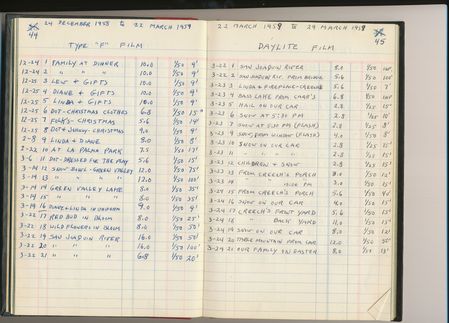 24 DECEMBER 1958 to 22 MARCH 1959
44
TYPE "F" FILM
12-24 1 FAMILY AT DINNER 10.0 1/50 9'
12-24 2 " " " 10.0 1/50 9'
12-25 3 LEW & GIFTS 10.0 1/50 9'
12-25 4 DIANE & GIFTS 10.0 1/50 9'
12-25 5 LINDA & GIFTS 10.0 1/50 9'
12-25 6 DOT-CHRISTMAS CLOTHES 6.8 1/50 15'
12-25 7 FOLKS-CHRISTMAS 5.6 1/50 14'
12-25 8 DOT & CHRISTMAS 4.0 1/50 9'
2-8 9 LINDA & DIANE 8.0 1/50 8'
2-22 10 AT LA PALMA PARK 7.5 1/50 13'
3-6 11 DOT-DRESSED FOR THE PLAY 5.6 1/50 15'
3-14 12 SNOW BOWL-GREEN VALLEY 12.0 1/50 75'
3-14 13 " " " 12.0 1/50 100'
3-14 14 GREEN VALLEY LAKE 8.0 1/50 35'
3-14 15 " " " 8.0 1/50 35'
3-16 16 LINDA IN UNIFORM 4.0 1/50 9'
3-22 17 RED BUD IN BLOOM 8.0 1/50 25'
3-22 18 WILDFLOWERS IN BLOOM 8.0 1/50 50'
3-22 19 SAN JOAQUIN RIVER 16.0 1/50 50'
3-22 20 " " " 16.0 1/50 100'
3-22 21 " " " 6.8 1/50 20'
22 MARCH 1959 to 29 MARCH 1959
45
DAYLITE FILM
3-22 1 SAN JOAQUIN RIVER 8.0 1/50 100'
3-22 2 SAN JOAQUIN RIV. FROM BRIDGE 5.6 1/50 100'
3-21 3 LINDA & FIREPLACE 5.6 1/50 7'
3-22 4 BASS LAKE FROM 6.8 1/50 50'
3-22 5 HAIL ON OUR CAR 2.8 1/50 15'
3-22 6 SNOW AT 5:30 PM 2.8 1/50 10'
3-22 7 SNOW AT 5:30 PM (FLASH) 2.8 1/50 8'
3-23 9 SNOW FROM WINDOW (FLASH) 4.0 1/50 8'
3-23 10 SNOW ON OUR CAR 2.8 1/50 15'
3-23 11 " " " 2.8 1/50 15'
3-23 12 CHILDREN & SNOW 2.8 1/50 15'
3-23 13 FROM CREECH'S PORCH 8.0 1/50 12'
3-23 14 " " " 12:00 PM 3.0 1/50 15'
3-24 15 FROM CREECH'S PORCH 5.6 1/50 45'
3-24 16 SNOW ON OUR CAR 4.0 1/50 15'
3-24 17 CREECH'S FRONT YARD 5.6 1/50 15'
3-24 18 " BACK YARD 11.0 1/50 15'
3-24 19 SNOW ON OUR CAR 8.0 1/50 12'
3-24 20 TABLE MOUNTAIN FROM CAR 12.0 1/50 50'
3-29 21 OUR FAMILY ON EASTER 8.0 1/50 13'